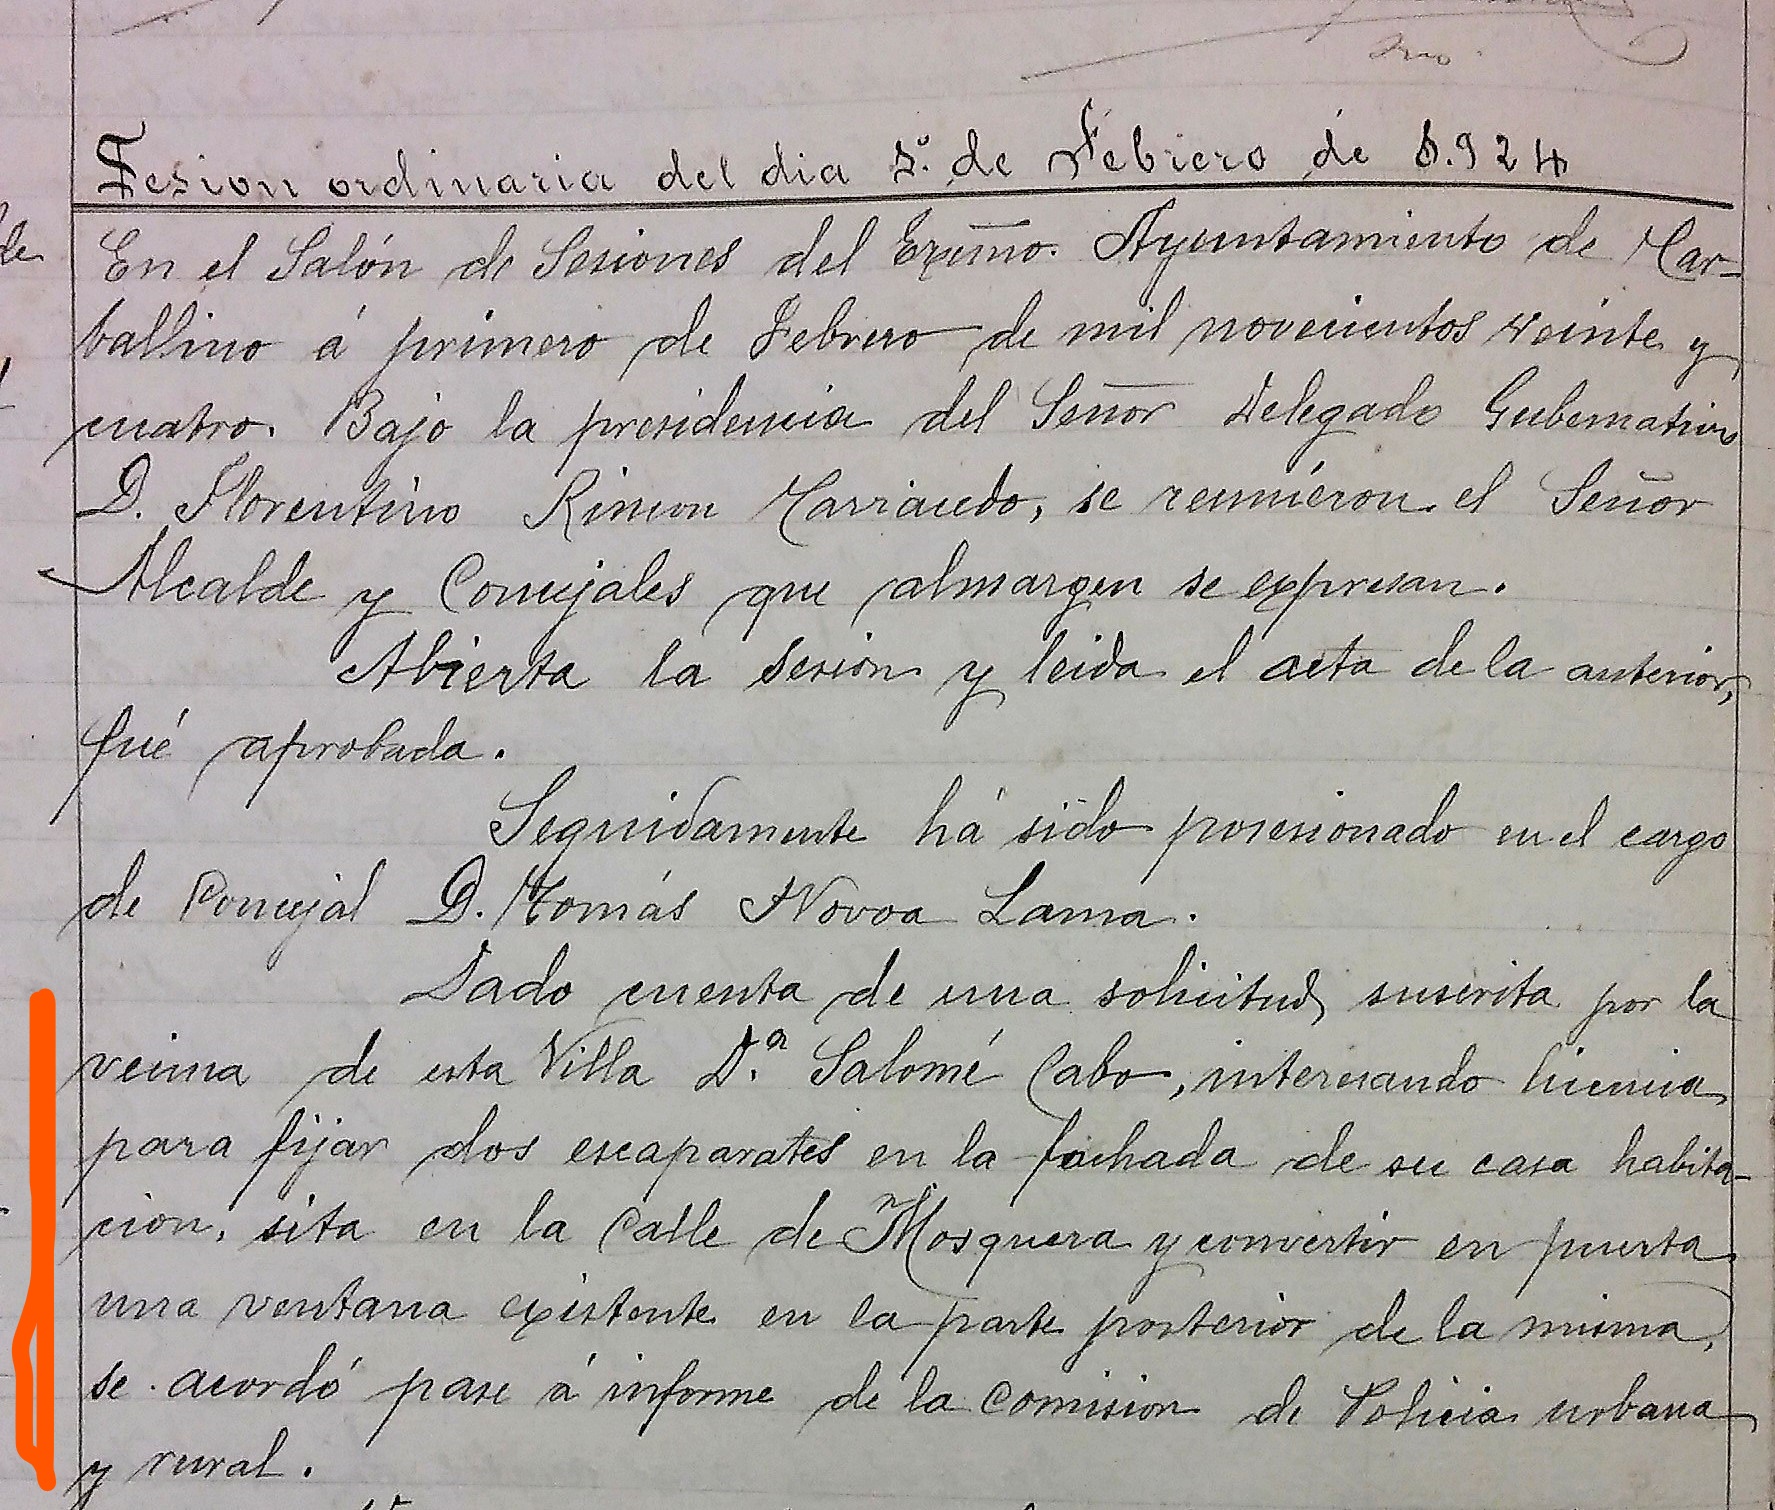 Sesion ordinaria del dia 1º. de Febrero de 1.924
En el Salón de Sesiones del Excmo. Ayuntamiento de Car-
ballino á primero de Febrero de mil novecientos veinte y
cuatro. Bajo la presidencia del Señor Delegado Gubernativo
D. Florentino Rincon, se reunieron el Señor
Alcalde y Concejales que almargen se expresan.
Abierta la sesion y leida el acta de la anterior,
fué aprobada.
Seguidamente há sido posesionado en el cargo
de Concejal D. Tomás Novoa Lama.
Dado cuenta de una solicitud suscrita por la
vecina de esta Villa D.ª Salomé Cabo, interesando licencia
para fijar dos escaparates en la fachada de su casa habita-
cion, sita en la Calle de Mosquera y convertir en puerta
una ventana existente en la parte posterior de la misma,
se acordó pase á informe de la Comision de Policia urbana
y rural.